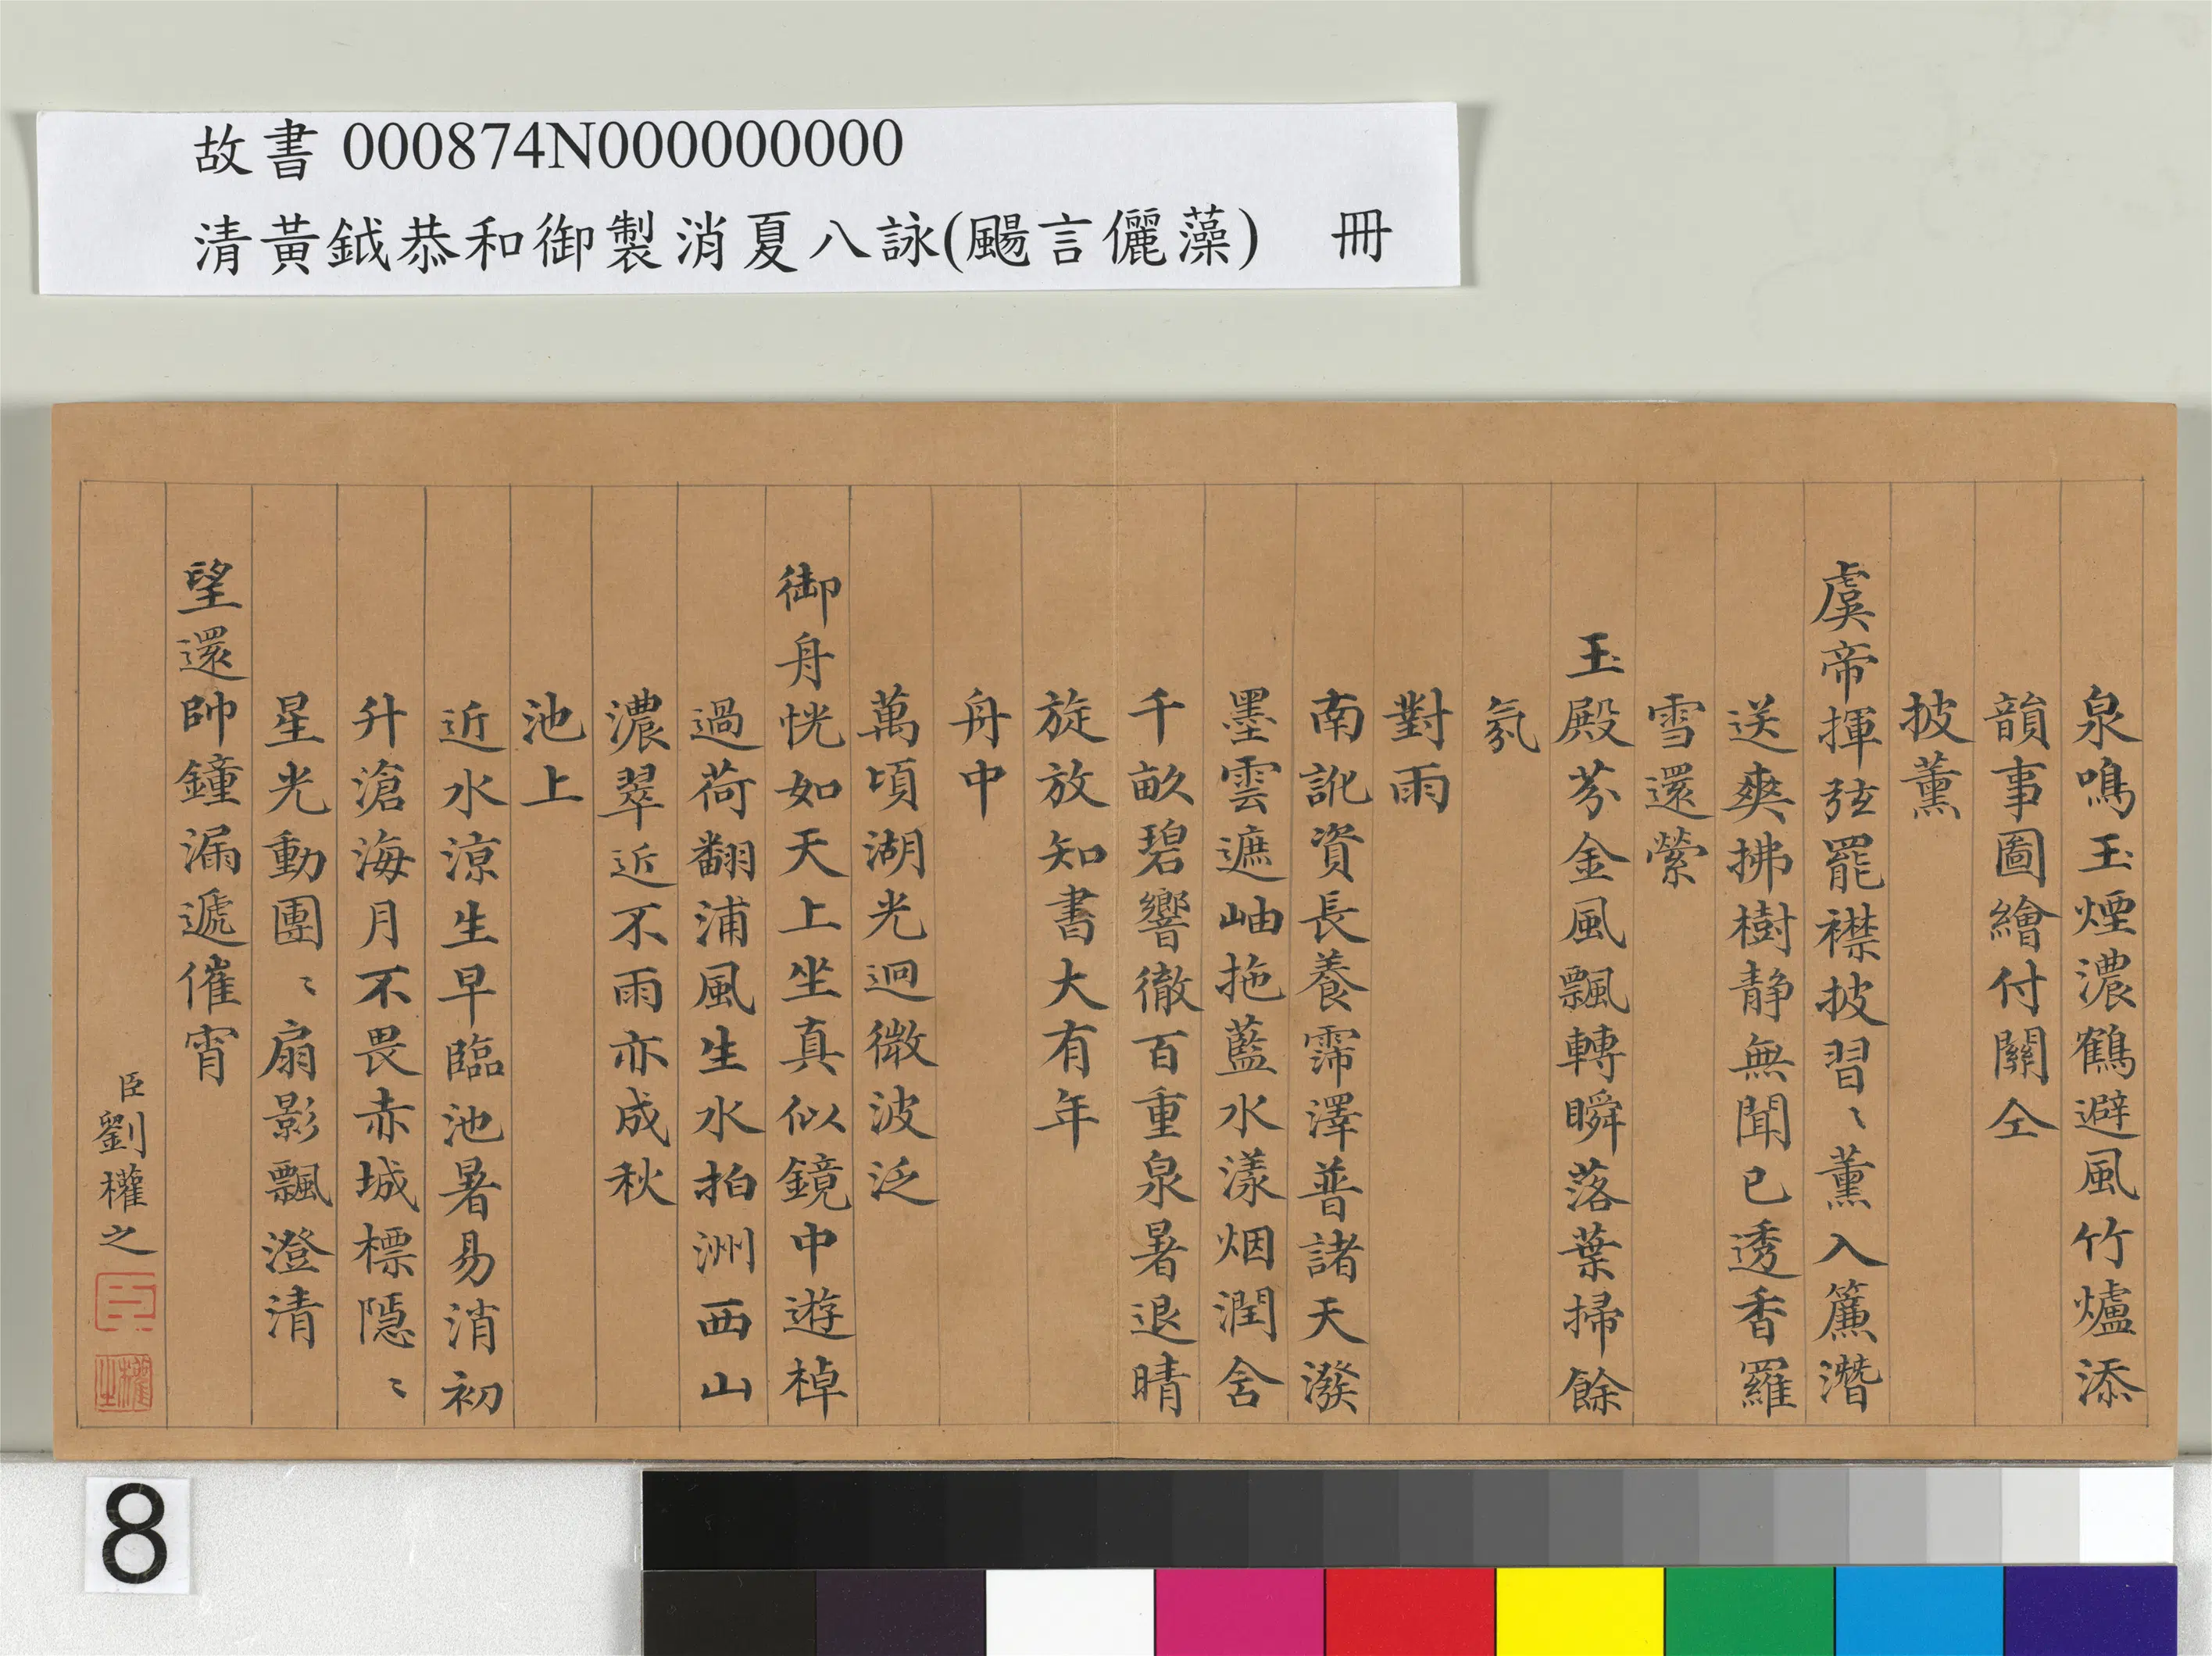 故書 000874N000000000
清黃鉞恭和御製消夏八詠(颺言儷藻) 冊
泉鳴玉煙濃鶴避風竹爐添
韻事圖繪付關仝
披薰
虞帝揮弦罷襟披習〻薰入簾潛
送爽拂樹靜無聞已透香羅
雪還縈
玉殿芬金風飄轉瞬落葉掃餘
氛
對雨
南訛資長養霈澤普諸天潑
墨雲遮岫拖藍水漾烟潤含
千畝碧響徹百重泉暑退晴
旋放知書大有年
舟中
萬頃湖光迥微波泛
御舟恍如天上坐真似鏡中遊棹
過荷翻浦風生水拍洲西山
濃翠近不雨亦成秋
池上
近水涼生早臨池暑易消初
升滄海月不畏赤城標隱〻
星光動團〻扇影飄澄清
望還帥鐘漏遞催宵
臣劉權之
臣
權之
8